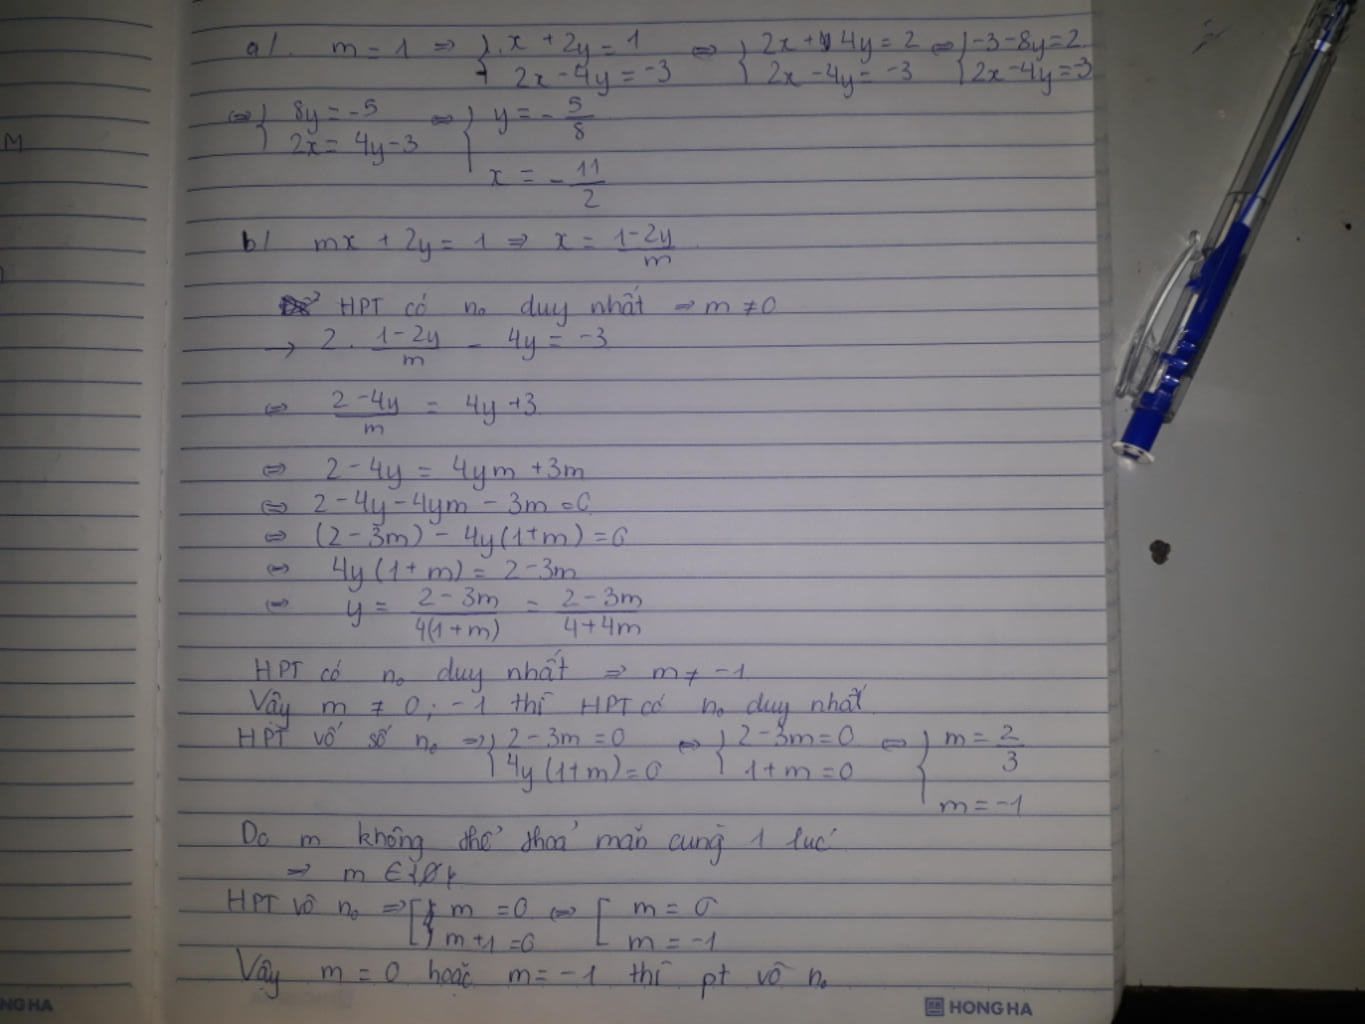 a/. m = 1 ⇒ { x + 2y = 1 ⇔ { 2x + 4y = 2 ⇔ { -3-8y=2
2x - 4y = -3 2x - 4y = -3 2x-4y=-3
⇔ { 8y = -5 ⇔ { y = - 5/8
2x = 4y - 3
x = - 11/2
b/ mx + 2y = 1 ⇒ x = (1-2y)/m
HPT có no duy nhất ⇒ m ≠ 0
→ 2 . (1-2y)/m - 4y = -3
⇔ (2-4y)/m = 4y +3
⇔ 2 - 4y = 4ym + 3m
⇔ 2 - 4y - 4ym - 3m = 0
⇔ (2 - 3m) - 4y(1+m) = 0
⇔ 4y (1+m) = 2-3m
⇔ y = (2-3m)/(4(1+m)) = (2-3m)/(4+4m)
HPT có no duy nhất ⇒ m ≠ -1
Vậy m ≠ 0; -1 thì HPT có no duy nhất
HPT vố số no ⇒ { 2-3m = 0 ⇔ { 2-3m=0 ⇔ { m = 2/3
4y(1+m) = 0 1+m = 0
m = -1
Do m không thể thoả mãn cùng 1 lúc
⇒ m ∈ {∅}
HPT vô no ⇒ [ m = 0 ⇔ [ m = 0
m+1 = 0 m = -1
Vậy m = 0 hoặc m = -1 thì pt vô no
M
NG HA
HONG HA